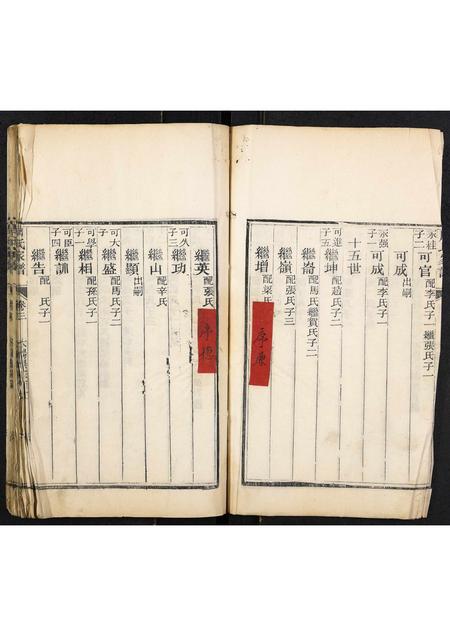 永桂子二 可官 配李氏子一繼張氏子一
可成 出嗣
永强子一 可成 配李氏子一
十五世
可進子五 繼坤 配趙氏子二
繼嵛 配馬氏繼賀氏子二
繼嶺 配張氏子三
繼增
序康
繼英 配張氏
序德
可久子三 繼功
繼山 配辛氏
繼顯 出嗣
可大子 繼盛 配馬氏子二
可學子一 繼相 配孫氏子一
可臣子四 繼訓
繼告 配 氏子
氏家譜 卷三